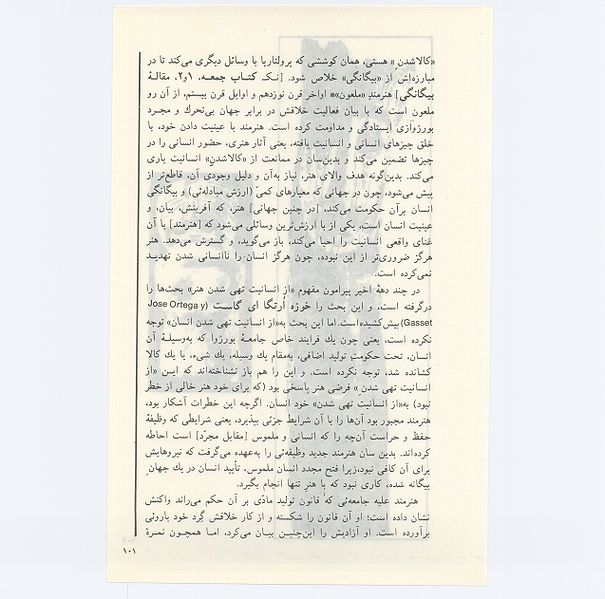 «کالاشدنِ» هستی، همان کوششی که پرولتاریا با وسائل دیگری می‌کند تا در
مبارزه‌اش از «بیگانگی» خلاص شود. [نک کتاب جمعه، ۱و۲، مقالهٔ
بیگانگی] هنرمندِ «ملعونِ»* اواخر قرن نوزدهم و اوایل قرن بیستم، از آن رو
ملعون است که با بیان فعالیت خلاقش در برابر جهان بی‌تحرك و مجرد
بورژوازی ایستادگی و مداومت کرده است. هنرمند با عینیت دادن خود، با
خلق چیزهای انسانی و انسانیت یافته، یعنی آثار هنری، حضور انسانی را در
چیزها تضمین می‌کند و بدین‌سان در ممانعت از «کالاشدنِ» انسانیت یاری
می‌کند. بدین‌گونه هدف والای هنر، نیاز به‌آن و دلیل وجودی آن، قاطع‌تر از
پیش می‌شود، چون در جهانی که معیارهای کمیّ (ارزش مبادله‌ئی) و بیگانگی
انسان برآن حکومت می‌کند، [در چنین جهانی] هنر، که آفرینش، بیان، و
عینیت انسان است، یکی از با ارزش‌ترین وسائلی می‌شود که [هنرمند] با آن
غنای واقعی انسانیت را احیا می‌کند، باز می‌گوید، و گسترش می‌دهد. هنر
هرگز ضروری‌تر از این نبوده، چون هرگز انسان را ناانسانی شدن تهدید
نمی‌کرده است.
در چند دههٔ اخیر پیرامون مفهوم «از انسانیت تهی شدن هنر» بحث‌ها را
درگرفته است، و این بحث را خوزه اُرتگا ای گاست (Jose Ortega y
Gasset) پیش کشیده‌است. اما این بحث به‌«از انسانیت تهی شدن انسان» توجه
نکرده است، یعنی چون یك فرایند خاص جامعهٔ بورژوا که به‌وسیلهٔ آن
انسان، تحت حکومتِ تولید اضافی، به‌مقام یك وسیله، یك شیء، یا یك کالا
کشانده شد، توجه نکرده است. و این را هم باز نشناخته‌اند که این «از
انسانیت تهی شدنِ» فرضی هنر پاسخی بود (که برای خود هنر خالی از خطر
نبود) به‌«از انسانیت تهی شدن» خود انسان. اگرچه این خطرات آشکار بود،
هنرمند مجبور بود آن‌ها را با آن شرایط جزئی بپذیرد، یعنی شرایطی که وظیفهٔ
حفظ و حراست آن‌چه را که انسانی و ملموس [مقابل مجرّد] است احاطه
کرده‌اند. بدین سان هنرمند جدید وظیفه‌ئی را به‌عهده می‌گرفت که نیروهایش
برای آن کافی نبود، زیرا فتح مجدد انسان ملموس، تأیید انسان در یك جهانِ
بیگانه شده، کاری نبود که با هنر تنها انجام بگیرد.
هنرمند علیه جامعه‌ئی که قانون تولید مادّی بر آن حکم می‌راند واکنش
نشان داده است؛ او آن قانون را شکسته و از کار خلاقش گرد خود باروئی
برآورده است. او آزادیش را این‌چنین بیان می‌کرد، اما همچون ثمرهٔ
۱۰۱